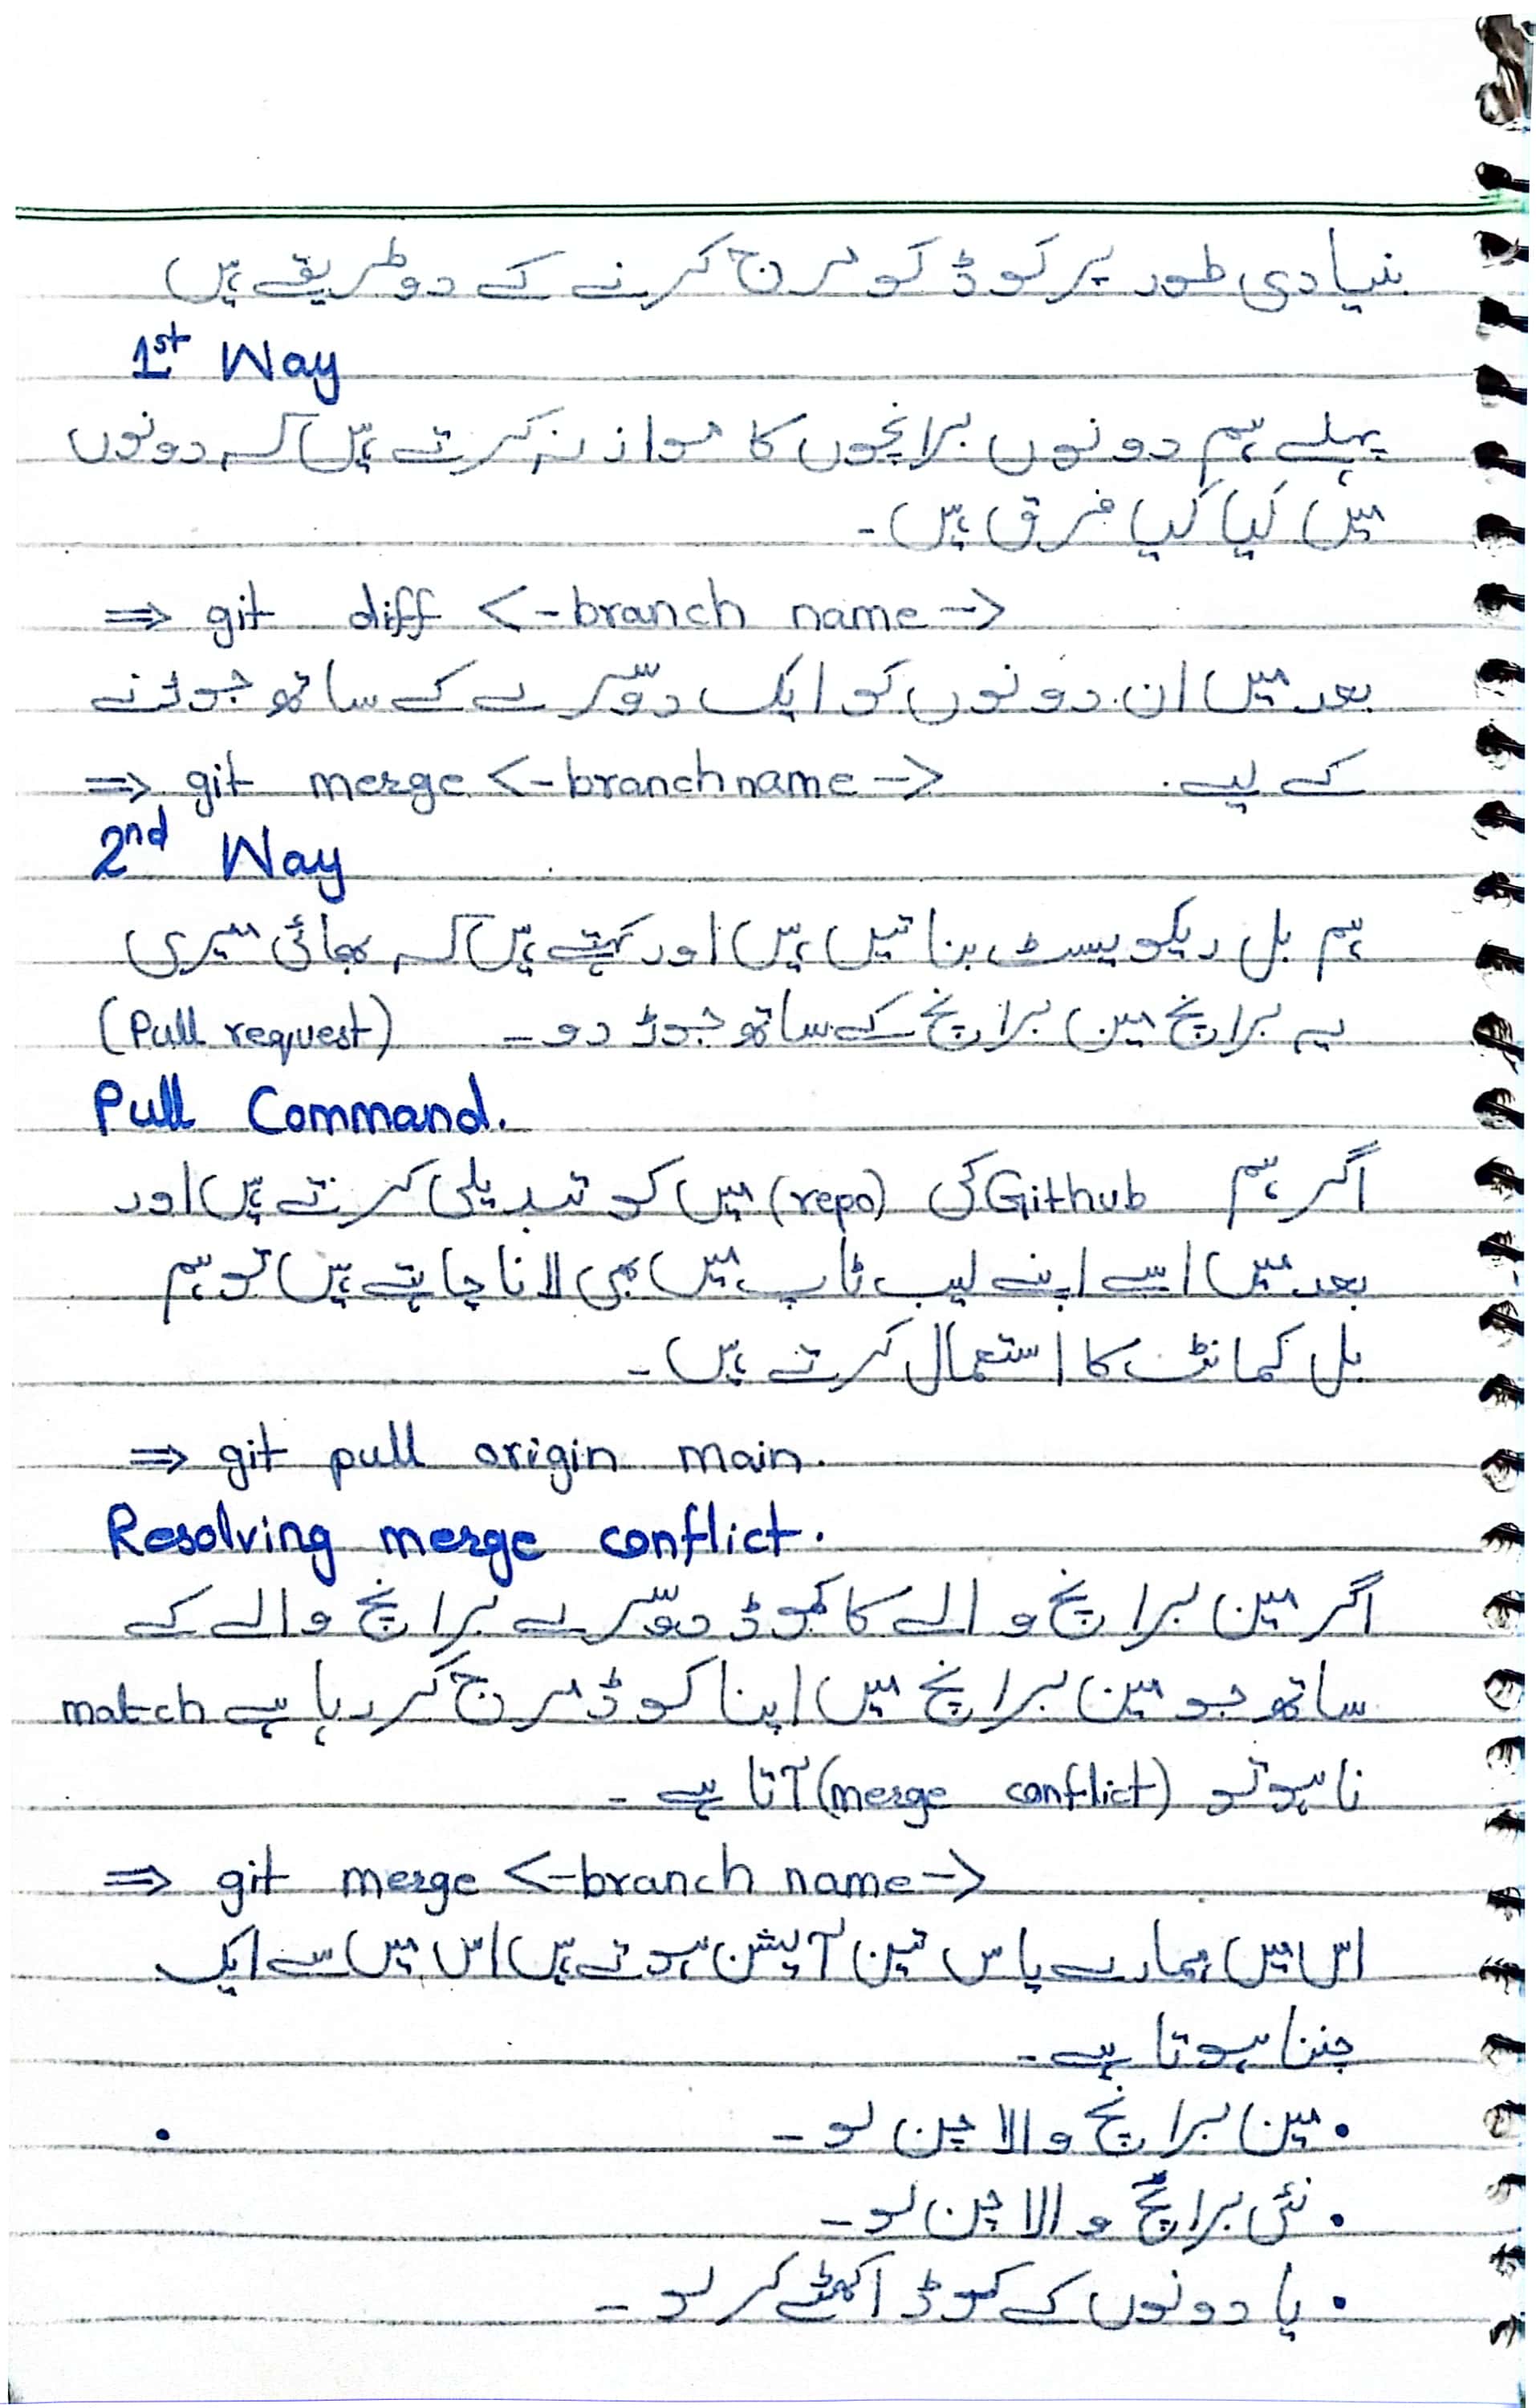 بنیادی طور پر کوڈ کو مرج کرنے کے دو طریقے ہیں
1st Way
پہلے ہم دونوں برانچوں کا موازنہ کرتے ہیں کہ دونوں
میں کیا کیا فرق ہیں۔
⇒ git diff <-branch name->
بعد میں ان دونوں کو ایک دوسرے کے ساتھ جوڑنے
کے لیے. ⇒ git merge <-branch name->
2nd Way
ہم پل ریکویسٹ بناتیں ہیں اور کہتے ہیں کہ بھائی میری
یہ برانچ مین برانچ کے ساتھ جوڑ دو۔ (Pull request)
Pull Command.
اگر ہم Github کی (repo) میں کو تبدیلی کرتے ہیں اور
بعد میں اسے اپنے لیپ ٹاپ میں بھی لانا چاہتے ہیں تو ہم
پل کمانڈ کا استعمال کرتے ہیں۔
⇒ git pull origin main.
Resolving merge conflict.
اگر مین برانچ والے کا کوڈ دوسرے برانچ والے کے
ساتھ جو مین برانچ میں اپنا کوڈ مرج کر رہا ہے match
نا ہو تو (merge conflict) آتا ہے۔
⇒ git merge <-branch name->
اس میں ہمارے پاس تین آپشن ہوتے ہیں اس میں سے ایک
چننا ہوتا ہے۔
• مین برانچ والا چن لو۔
• نئی برانچ والا چن لو۔
• یا دونوں کے کوڈ اکھٹے کر لو۔